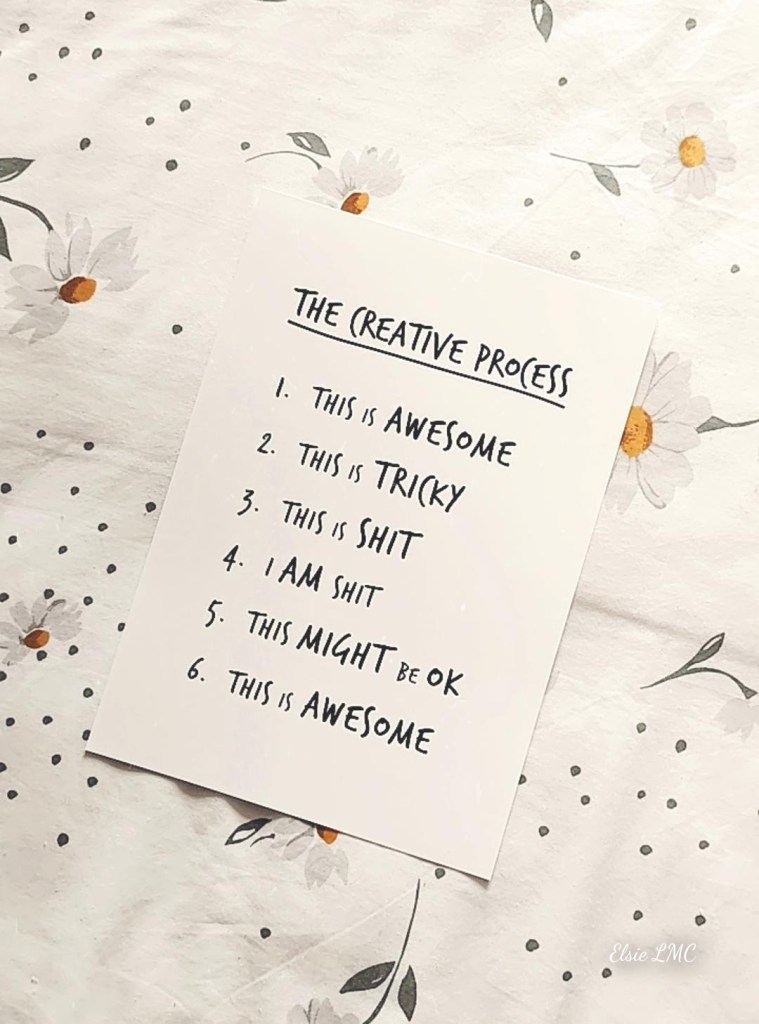 THE CREATIVE PROCESS
1. THIS IS AWESOME
2. THIS IS TRICKY
3. THIS IS SHIT
4. I AM SHIT
5. THIS MIGHT BE OK
6. THIS IS AWESOME
Elsie LMC